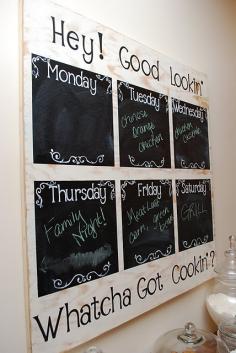 Hey! Good Lookin'
Monday
Tuesday
Chinese
Orange
Chicken
Wednesday
Chicken
Thursday
Family
Night!
Friday
Meat Loaf
corn, green
beans
Saturday
GRILL
Whatcha Got Cookin'?